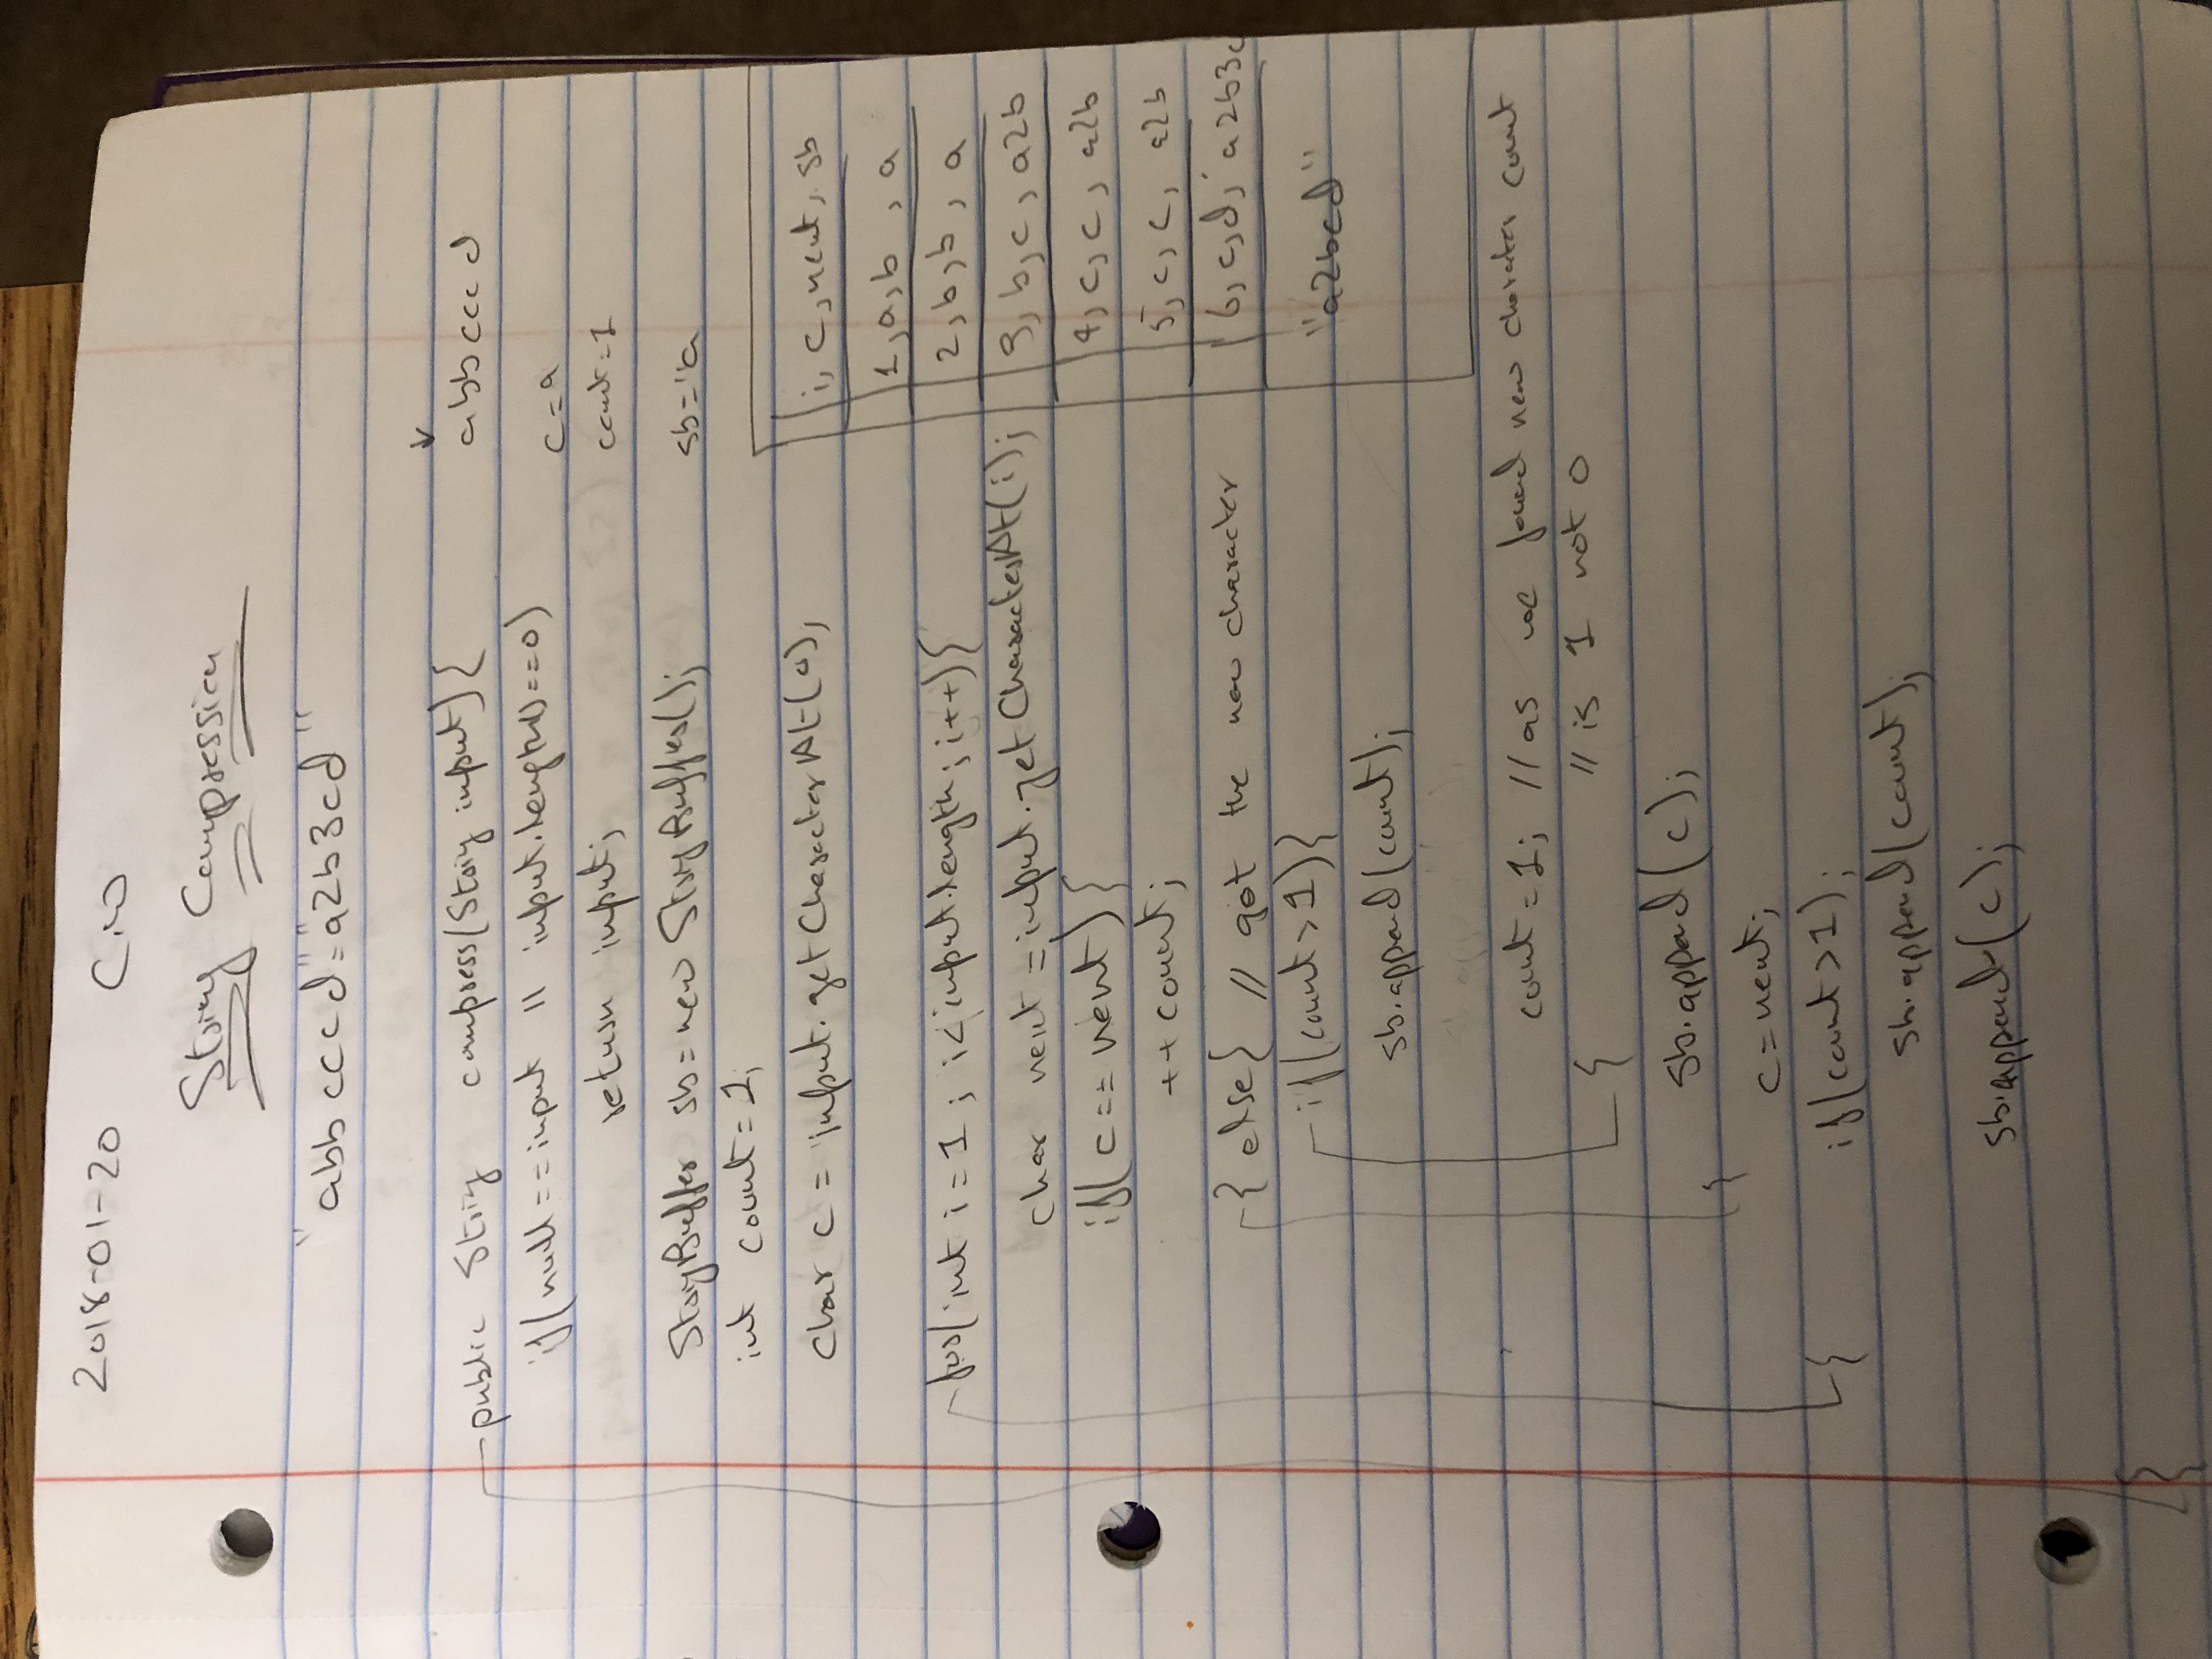 2018-01-20 C.W
String Compression
"abbcccd"="a2b3cd"
public String compress(String input){
if(null==input || input.length()==0)
return input;
StringBuffer sb=new StringBuffer();
int count=1;
char c = input.getCharacterAt(0);
for(int i=1; i<input.length; i++){
char next =input.getCharacterAt(i);
if(c==next){
++count;
} else{ // got the new character
if(count>1){
sb.append(count);
count=1; // as we found new character count
// is 1 not 0
}
sb.append(c);
}
c=next;
}
if(count>1);
sb.append(count);
sb.append(c);
}
abbcccd
c=a
count=1
sb="a
i, c, next, sb
1,a,b , a
2,b,b, a
3,b,c, a2b
4,c,c, a2b
5,c,c, a2b
6,c,d, a2b3c
"a2bcd"